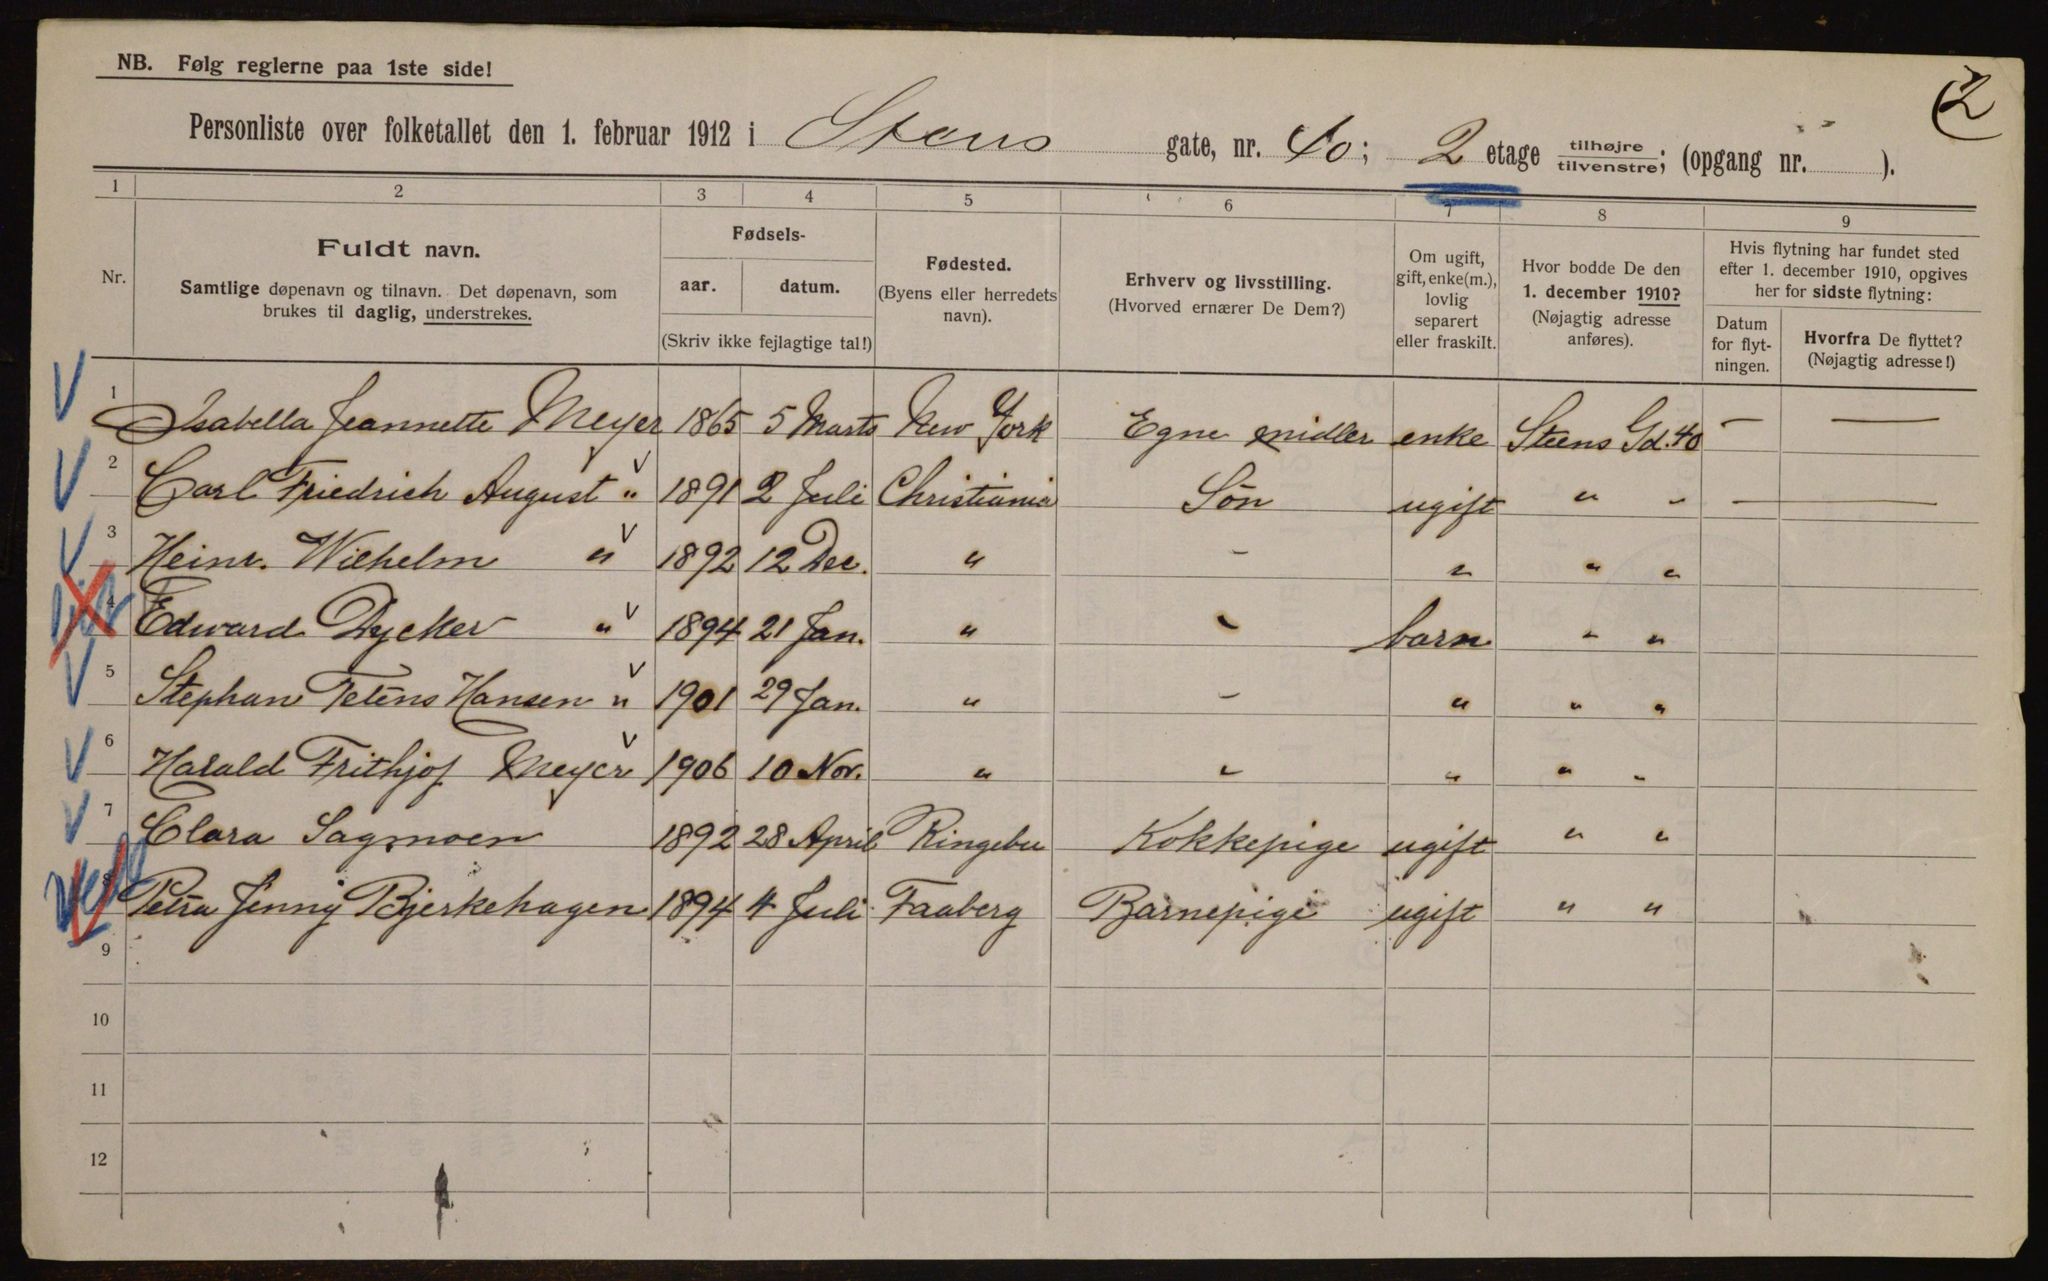 NB. Følg reglerne paa 1ste side!
2
Personliste over folketallet den 1. februar 1912 i Stens gate, nr. 40; 2 etage tilhøjre/tilvenstre; (opgang nr. ).
1 2 3 4 5 6 7 8 9
Nr.
Fuldt navn.
Samtlige døpenavn og tilnavn. Det døpenavn, som
brukes til daglig, understrekes.
Fødsels-
aar. datum.
(Skriv ikke fejlagtige tal!)
Fødested.
(Byens eller herredets
navn).
Erhverv og livsstilling.
(Hvorved ernærer De Dem?)
Om ugift,
gift, enke(m.),
lovlig
separert
eller fraskilt.
Hvor bodde De den
1. december 1910?
(Nøjagtig adresse
anføres).
Hvis flytning har fundet sted
efter 1. december 1910, opgives
her for sidste flytning:
Datum
for flyt-
ningen.
Hvorfra De flyttet?
(Nøjagtig adresse!)
1 Isabella Jeannette Meyer 1865 5 Marts New York Egne midler enke Steens Gd. 40 — —
2 Carl Friedrich August " 1891 2 Juli Christiania Sön ugift " " — —
3 Heinr. Wilhelm " 1892 12 Dec. " " " " "
4 Edward Dycker " 1894 21 Jan. " " barn " "
5 Stephan Tetens Hansen " 1901 29 Jan. " " " " "
6 Harald Frithjof Meyer 1906 10 Nov. " " " " "
7 Clara Sagmoen 1892 28 April Ringebu Kokkepige ugift " "
8 Petra Jenny Bjerkehagen 1894 4 Juli Faaberg Barnepige ugift " "
9
10
11
12